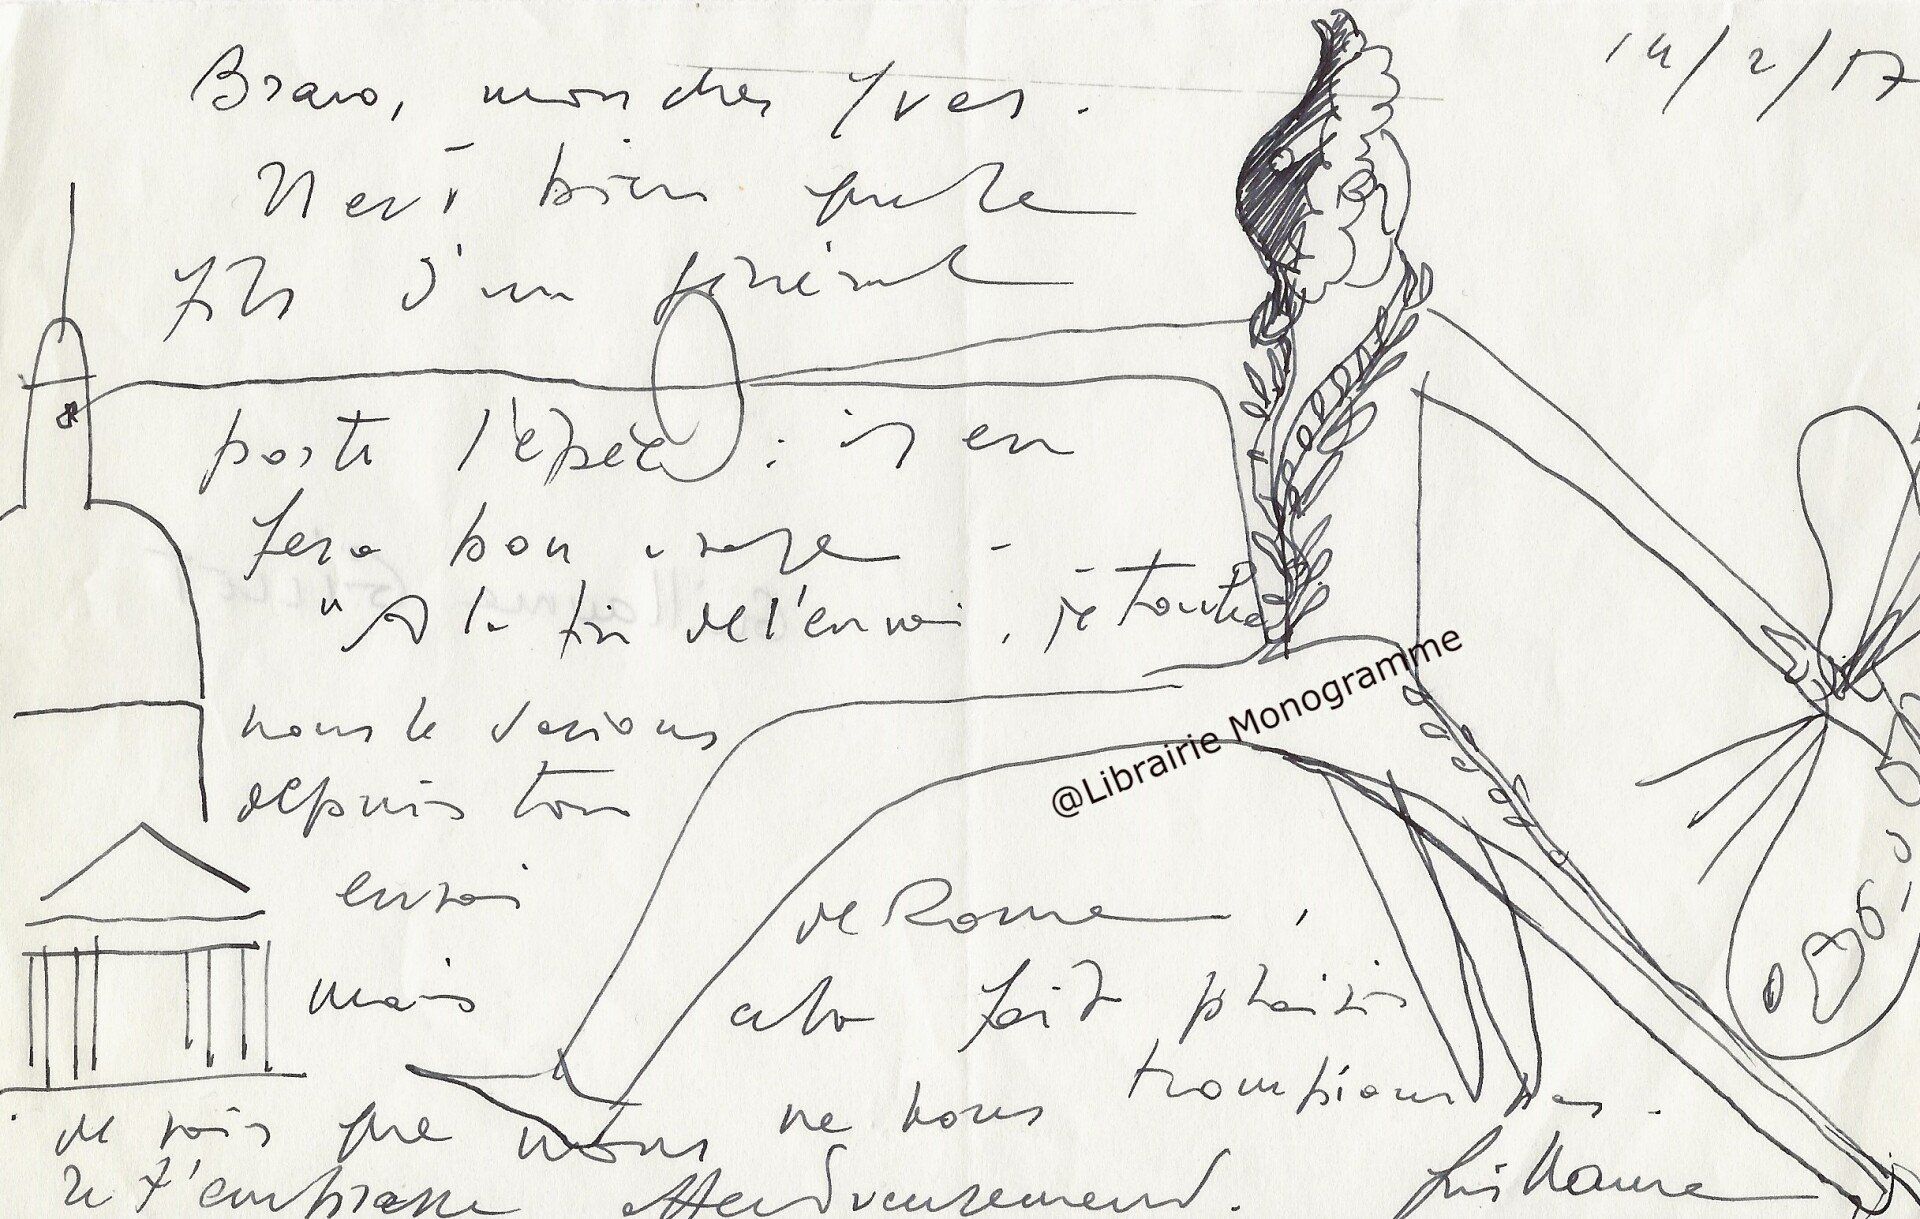 14/2/57
Bravo, mon cher Yves.
Il est bien que le
fils d'un général
porte l'épée : il en
fera bon usage -
"A la fin de l'envoi, je touche
nous le savions
depuis ton
envoi de Rome,
mais cela fait plaisir
de voir que nous ne nous trompions pas.
Je t'embrasse affectueusement. Guillaume
@Librairie Monogramme